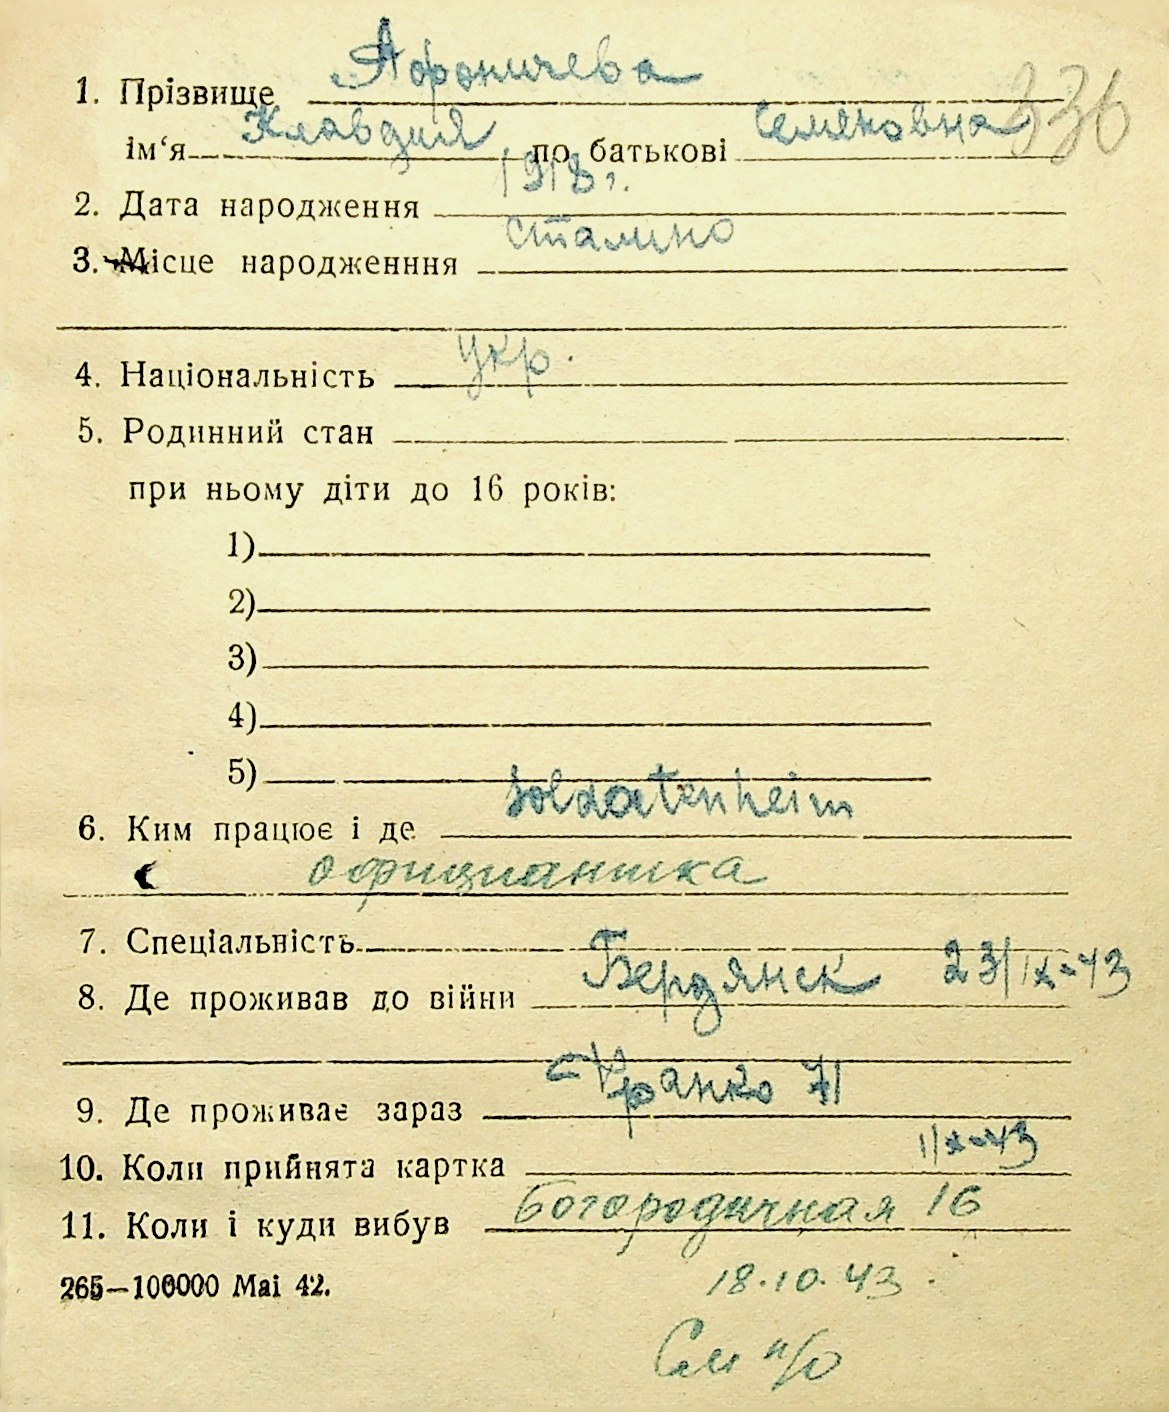 Афоничева
1. Прізвище
336
Клавдия Семеновна
ім'я по батькові
1918 г.
2. Дата народження
Сталино
3. Місце народженння
укр.
4. Національність
5. Родинний стан
при ньому діти до 16 років:
1)
2)
3)
4)
5)
Soldatenheim
6. Ким працює і де
официантка
7. Спеціальність
Бердянск 23/IX-43
8. Де проживав до війни
Франко 71
9. Де проживає зараз
1/X-43
10. Коли прийнята картка
Богородичная 16
11. Коли і куди вибув
265—100000 Маі 42.
18.10.43.
См н/о